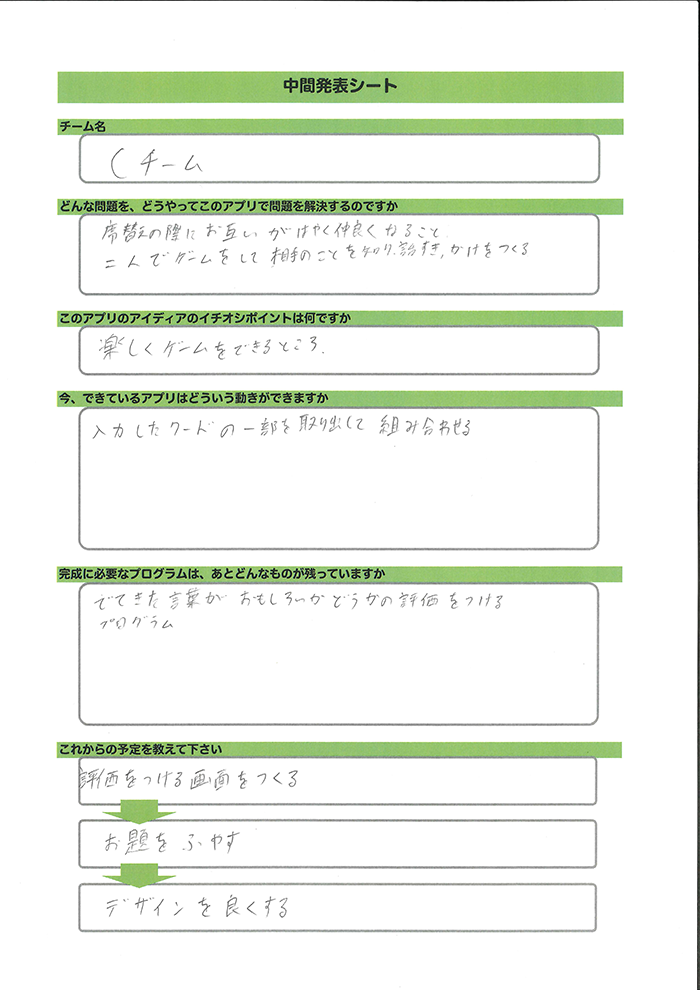 中間発表シート
チーム名
Cチーム
どんな問題を、どうやってこのアプリで問題を解決するのですか
席替えの際にお互いがはやく仲良くなること
二人でゲームをして相手のことを知り、話すき,かけをつくる
このアプリのアイディアのイチオシポイントは何ですか
楽しくゲームをできるところ.
今、できているアプリはどういう動きができますか
入力したワードの一部を取り出して組み合わせる
完成に必要なプログラムは、あとどんなものが残っていますか
でてきた言葉がおもしろいかどうかの評価をつける
プログラム
これからの予定を教えて下さい
評価をつける画面をつくる
お題をふやす
デザインを良くする